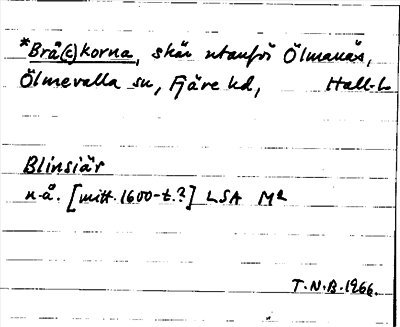 *Brå(c)korna, skär utanför Ölmanäs,
Ölmevalla sn, Fjäre hd, Hall. l.
Blinsiär
n.å. [mitt. 1600-t.?] LSA M2
T.N.B. 1966.